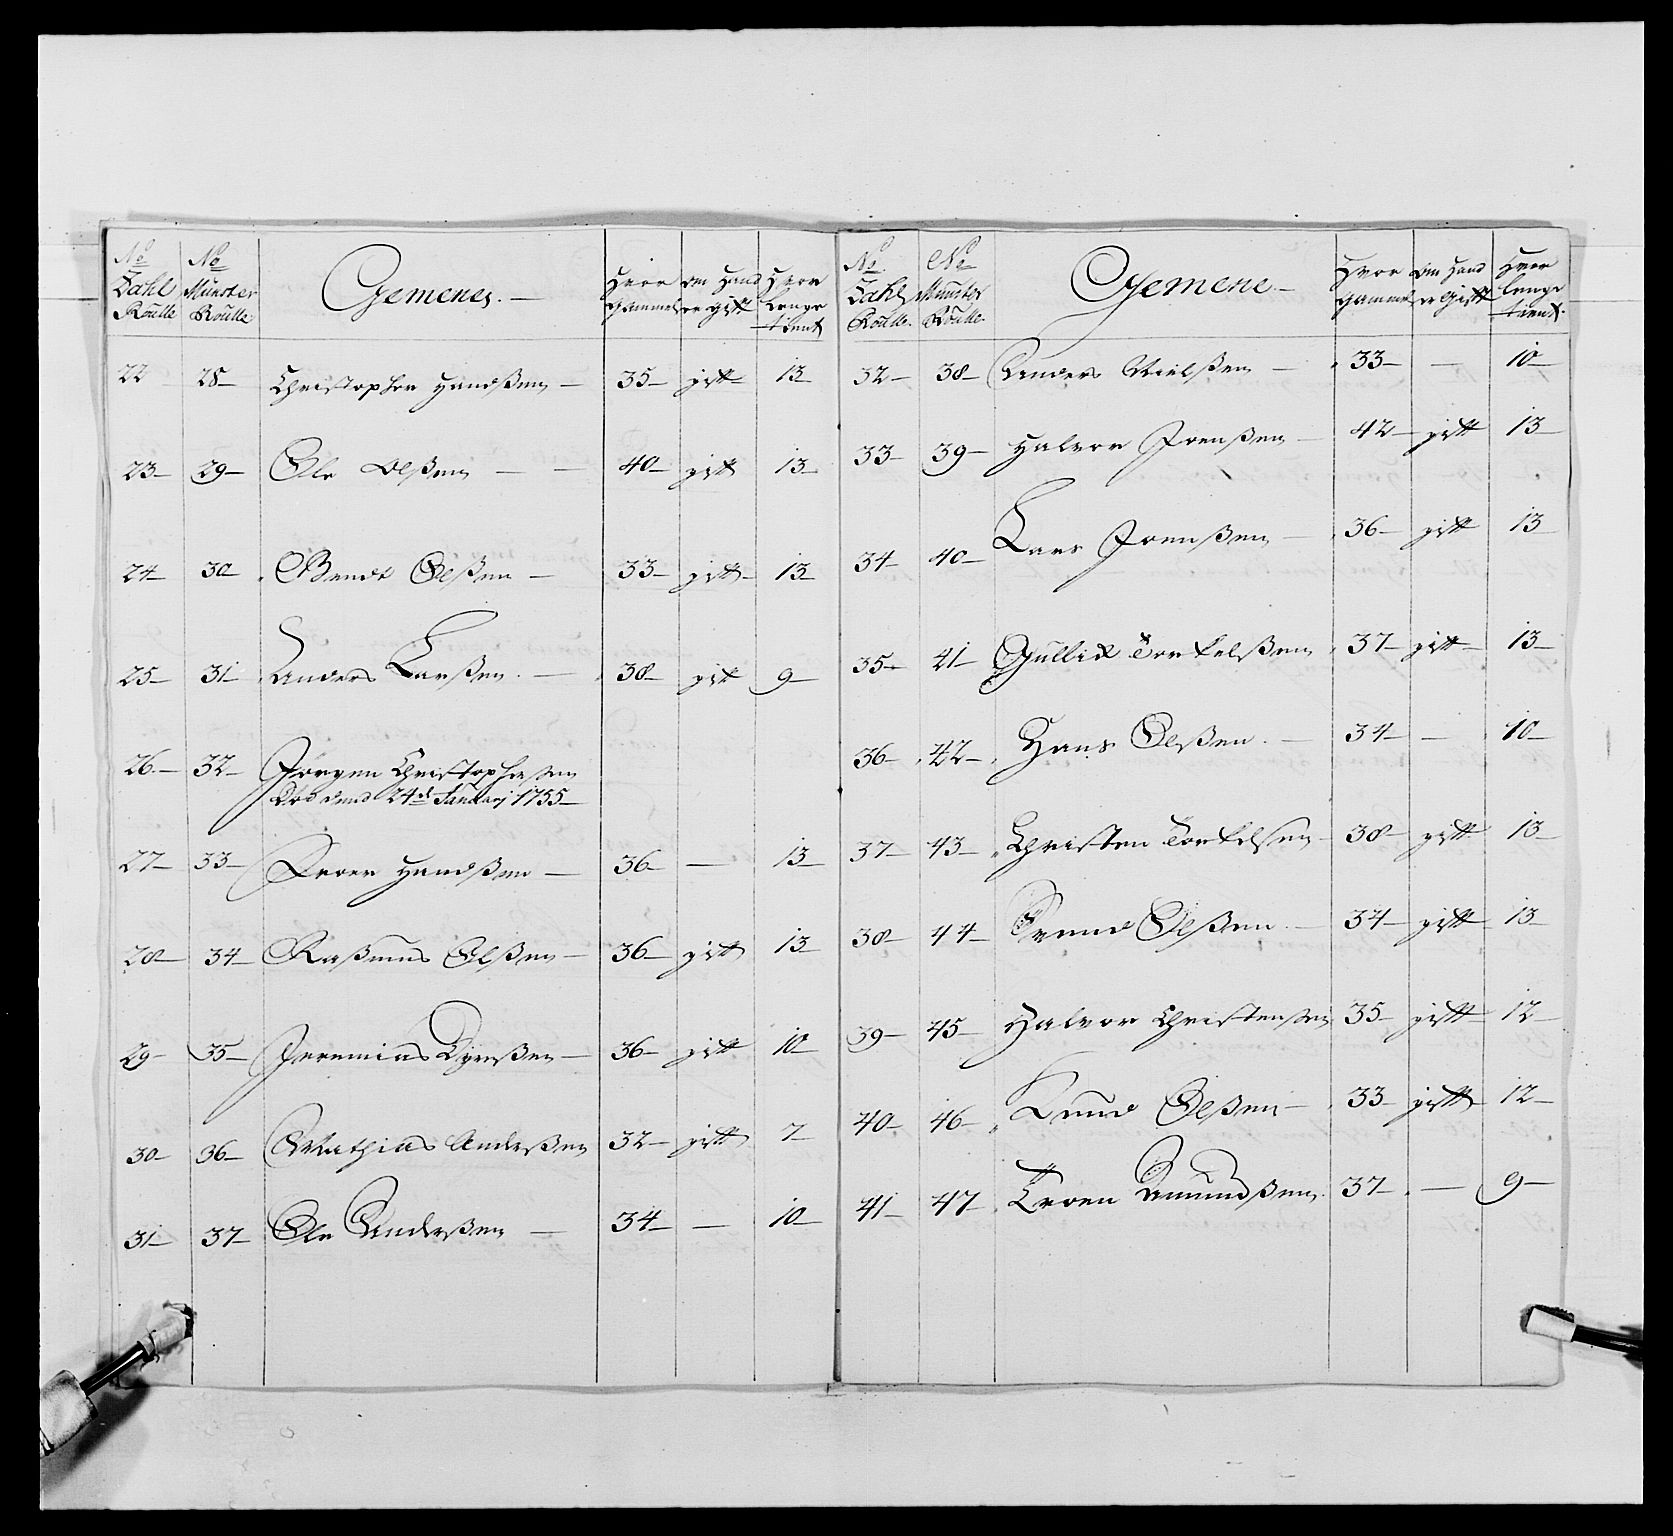 No Zahl Roulle | No Münster Roulle | Gemenes. — | Hvor gammel | Om Hand er gift | Hvor lenge tient
22 28 — Christopher Handßen — 35 — gift — 13
23 — 29 — Ole Olßen — — 40 — gift 13
24 — 30 Bendt Olßen — 33 — gift — 13
25 — 31 — Anders Larßen. — 38 — gift 9 —
26. — 32 — Jörgen Christophersen
Död dend 24de Januarj 1755 —
27 — 33 — Handßen — 36 — — 13
28 — 34 — Raßmus Olßen — 36 — gift 13
29 — 35 — Jeremias — 36 — gift 10
30 — 36 — Mathias Anderßen 32 — gift 7
31 — 37 — Ole Anderßen — 34 — — 10
No Zahl Roulle. | No Münster Roulle. | Gemene — | Hvor gammel | Om Hand er Gift | Hvor lenge tient.
32 — 38 — Anders Nielßen — 33 — — 10
33 — 39 — Halvor Joenßen — 42 — gift 13
34 — 40 — Lars Joenßen — 36 — gift 13
35 — 41 — Gullik Torkelßen 37 — gift — 13
36 — 42 — Hans Olßen. — 34 — — 10
37 — 43 — Christen Torkelsen — 38 — gift 13
38 — 44 — Olßen. — 34 — gift 13
39 — 45 — Halvor Christensen 35 — gift 12
40 — 46 — Knud Olßen — 33 gift 12 —
41 — 47 Troen Amundßen. 37 — — 9 —